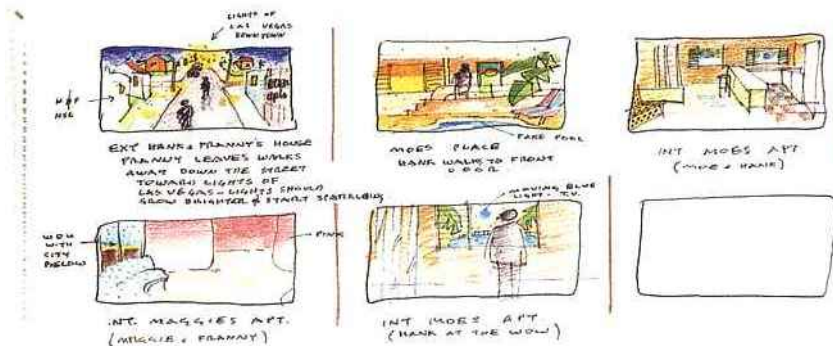 LIGHTS OF
LAS VEGAS
DOWNTOWN
H & F
HSE
EXT HANK & FRANNY'S HOUSE
FRANNY LEAVES WALKS
AWAY DOWN THE STREET
TOWARD LIGHTS OF
LAS VEGAS - LIGHTS SHOULD
GROW BRIGHTER & START SPARKLING
FAKE POOL
MOES PLACE
HANK WALKS TO FRONT
DOOR.
INT MOES APT
(MOE & HANK)
WDW
WITH
CITY
BELOW
PINK
INT. MAGGIES APT.
(MAGGIE & FRANNY)
MOVING BLUE
LIGHT - T.V.
INT MOES APT
(HANK AT THE WDW)